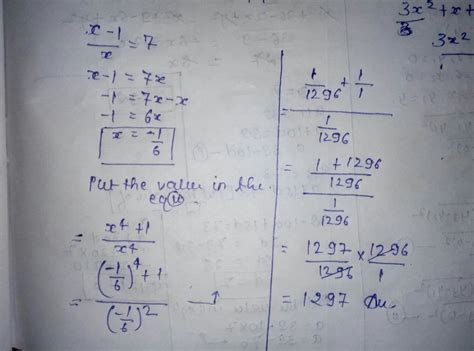 x-1/x = 7
x-1 = 7x
-1 = 7x-x
-1 = 6x
x = -1/6
Put the value in the
eq (ii)
= x⁴+1/x⁴
= (-1/6)⁴+1/(-1/6)² →
1/1296 + 1/1
= /1/1296
= 1+1296/1296/1/1296
= 1297/1296 × 1296/1
= 1297 Au.
3x²+x+
3
3x²